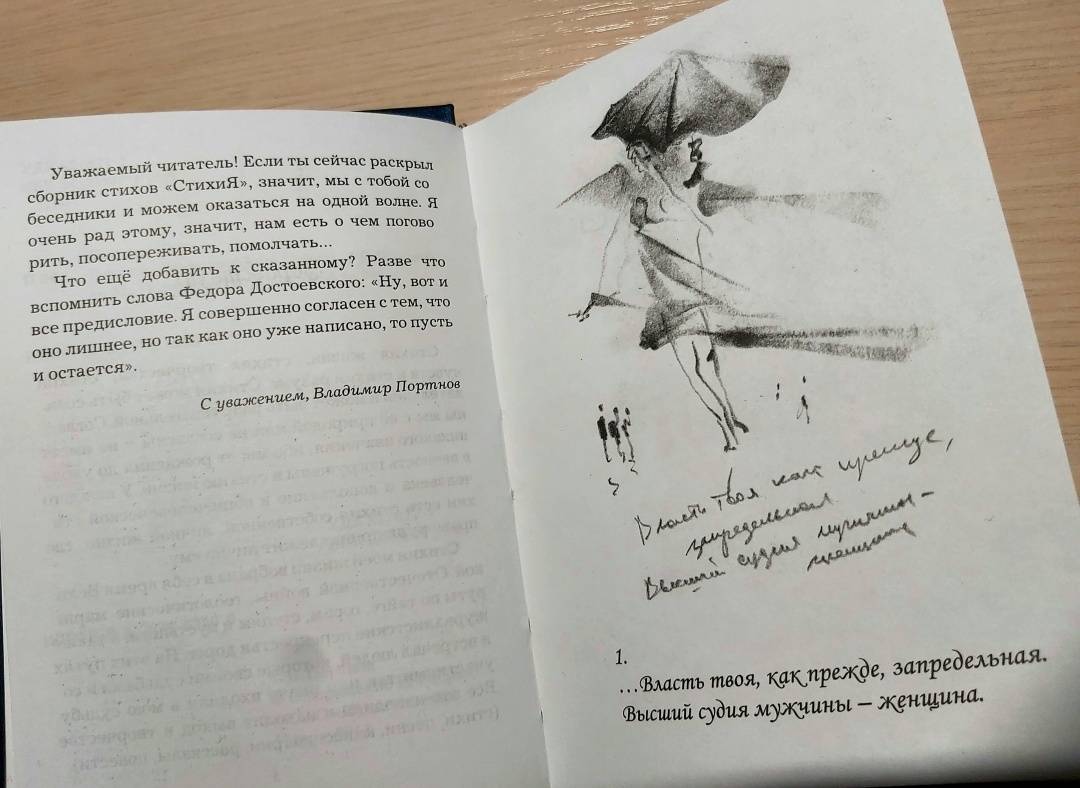 Уважаемый читатель! Если ты сейчас раскрыл
сборник стихов «СтихиЯ», значит, мы с тобой со
беседники и можем оказаться на одной волне. Я
очень рад этому, значит, нам есть о чем погово
рить, посопереживать, помолчать...
Что ещё добавить к сказанному? Разве что
вспомнить слова Федора Достоевского: «Ну, вот и
все предисловие. Я совершенно согласен с тем, что
оно лишнее, но так как оно уже написано, то пусть
и остается».
С уважением, Владимир Портнов
Власть твоя как прежде,
запредельная
Высший судия мужчины –
женщина
1.
...Власть твоя, как прежде, запредельная.
Высший судия мужчины – женщина.